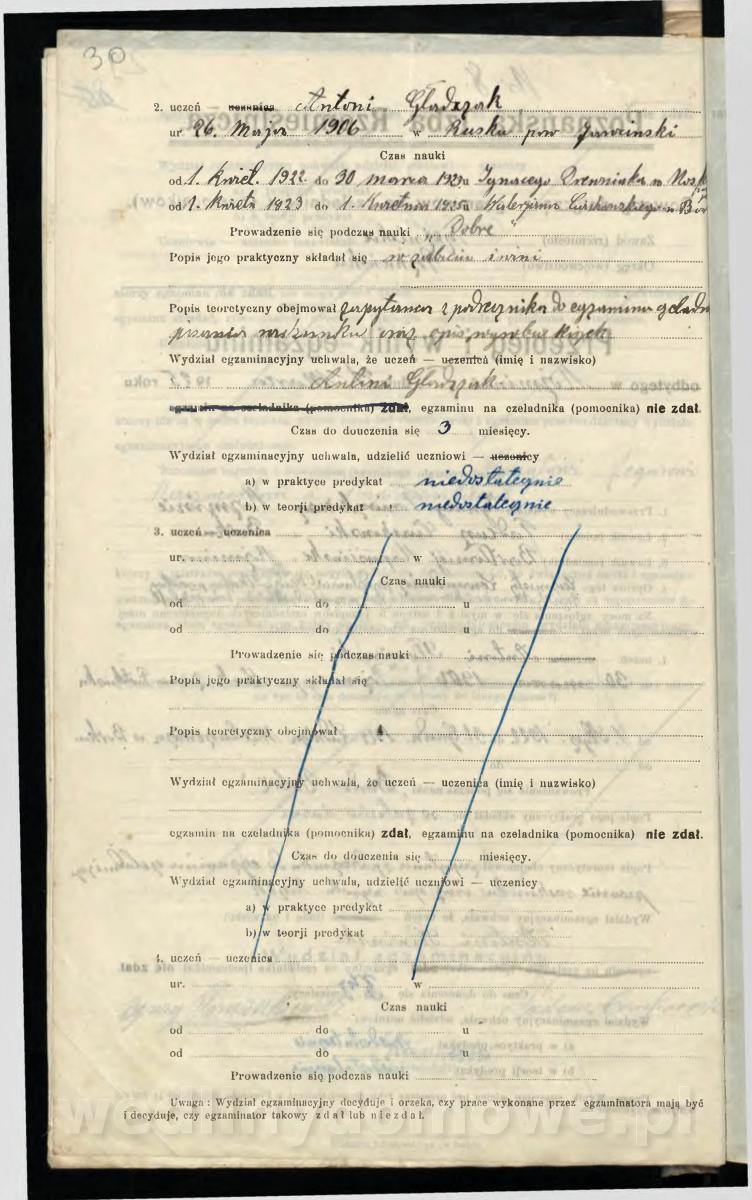 30
2. uczeń — uczenica Antoni Gładzzak
ur 26. Maja 1906 w Rusku pow Jarocinski
Czas nauki
od 1. Kwiet. 1922 do 30 marca u Ignacego Drewniaka w
od 1. Kwiet. 1923 do 1. Kwietnia 1925 u Walerjana w
Prowadzenie się podczas nauki „Dobre"
Popis jego praktyczny składał się w
Popis teoretyczny obejmował z podręcznika do egzaminu
oraz opis
Wydział egzaminacyjny uchwala, że uczeń — uczenica (imię i nazwisko)
Antoni Gładzzak
egzamin na czeladnika (pomocnika) zdał, egzaminu na czeladnika (pomocnika) nie zdał.
Czas do douczenia się 3 miesięcy.
Wydział egzaminacyjny uchwala, udzielić uczniowi — uczenicy
a) w praktyce predykat niedostatecznie
b) w teorji predykat niedostatecznie
3. uczeń — uczenica
ur. w
Czas nauki
od do u
od do u
Prowadzenie się podczas nauki
Popis jego praktyczny składał się
Popis teoretyczny obejmował
Wydział egzaminacyjny uchwala, że uczeń — uczenica (imię i nazwisko)
egzamin na czeladnika (pomocnika) zdał, egzaminu na czeladnika (pomocnika) nie zdał.
Czas do douczenia się miesięcy.
Wydział egzaminacyjny uchwala, udzielić uczniowi — uczenicy
a) w praktyce predykat
b) w teorji predykat
4. uczeń — uczenica
ur. w
Czas nauki
od do u
od do u
Prowadzenie się podczas nauki
Uwaga: Wydział egzaminacyjny decyduje i orzeka, czy prace wykonane przez egzaminatora mają być
i decyduje, czy egzaminator takowy zdał lub nie zdał.